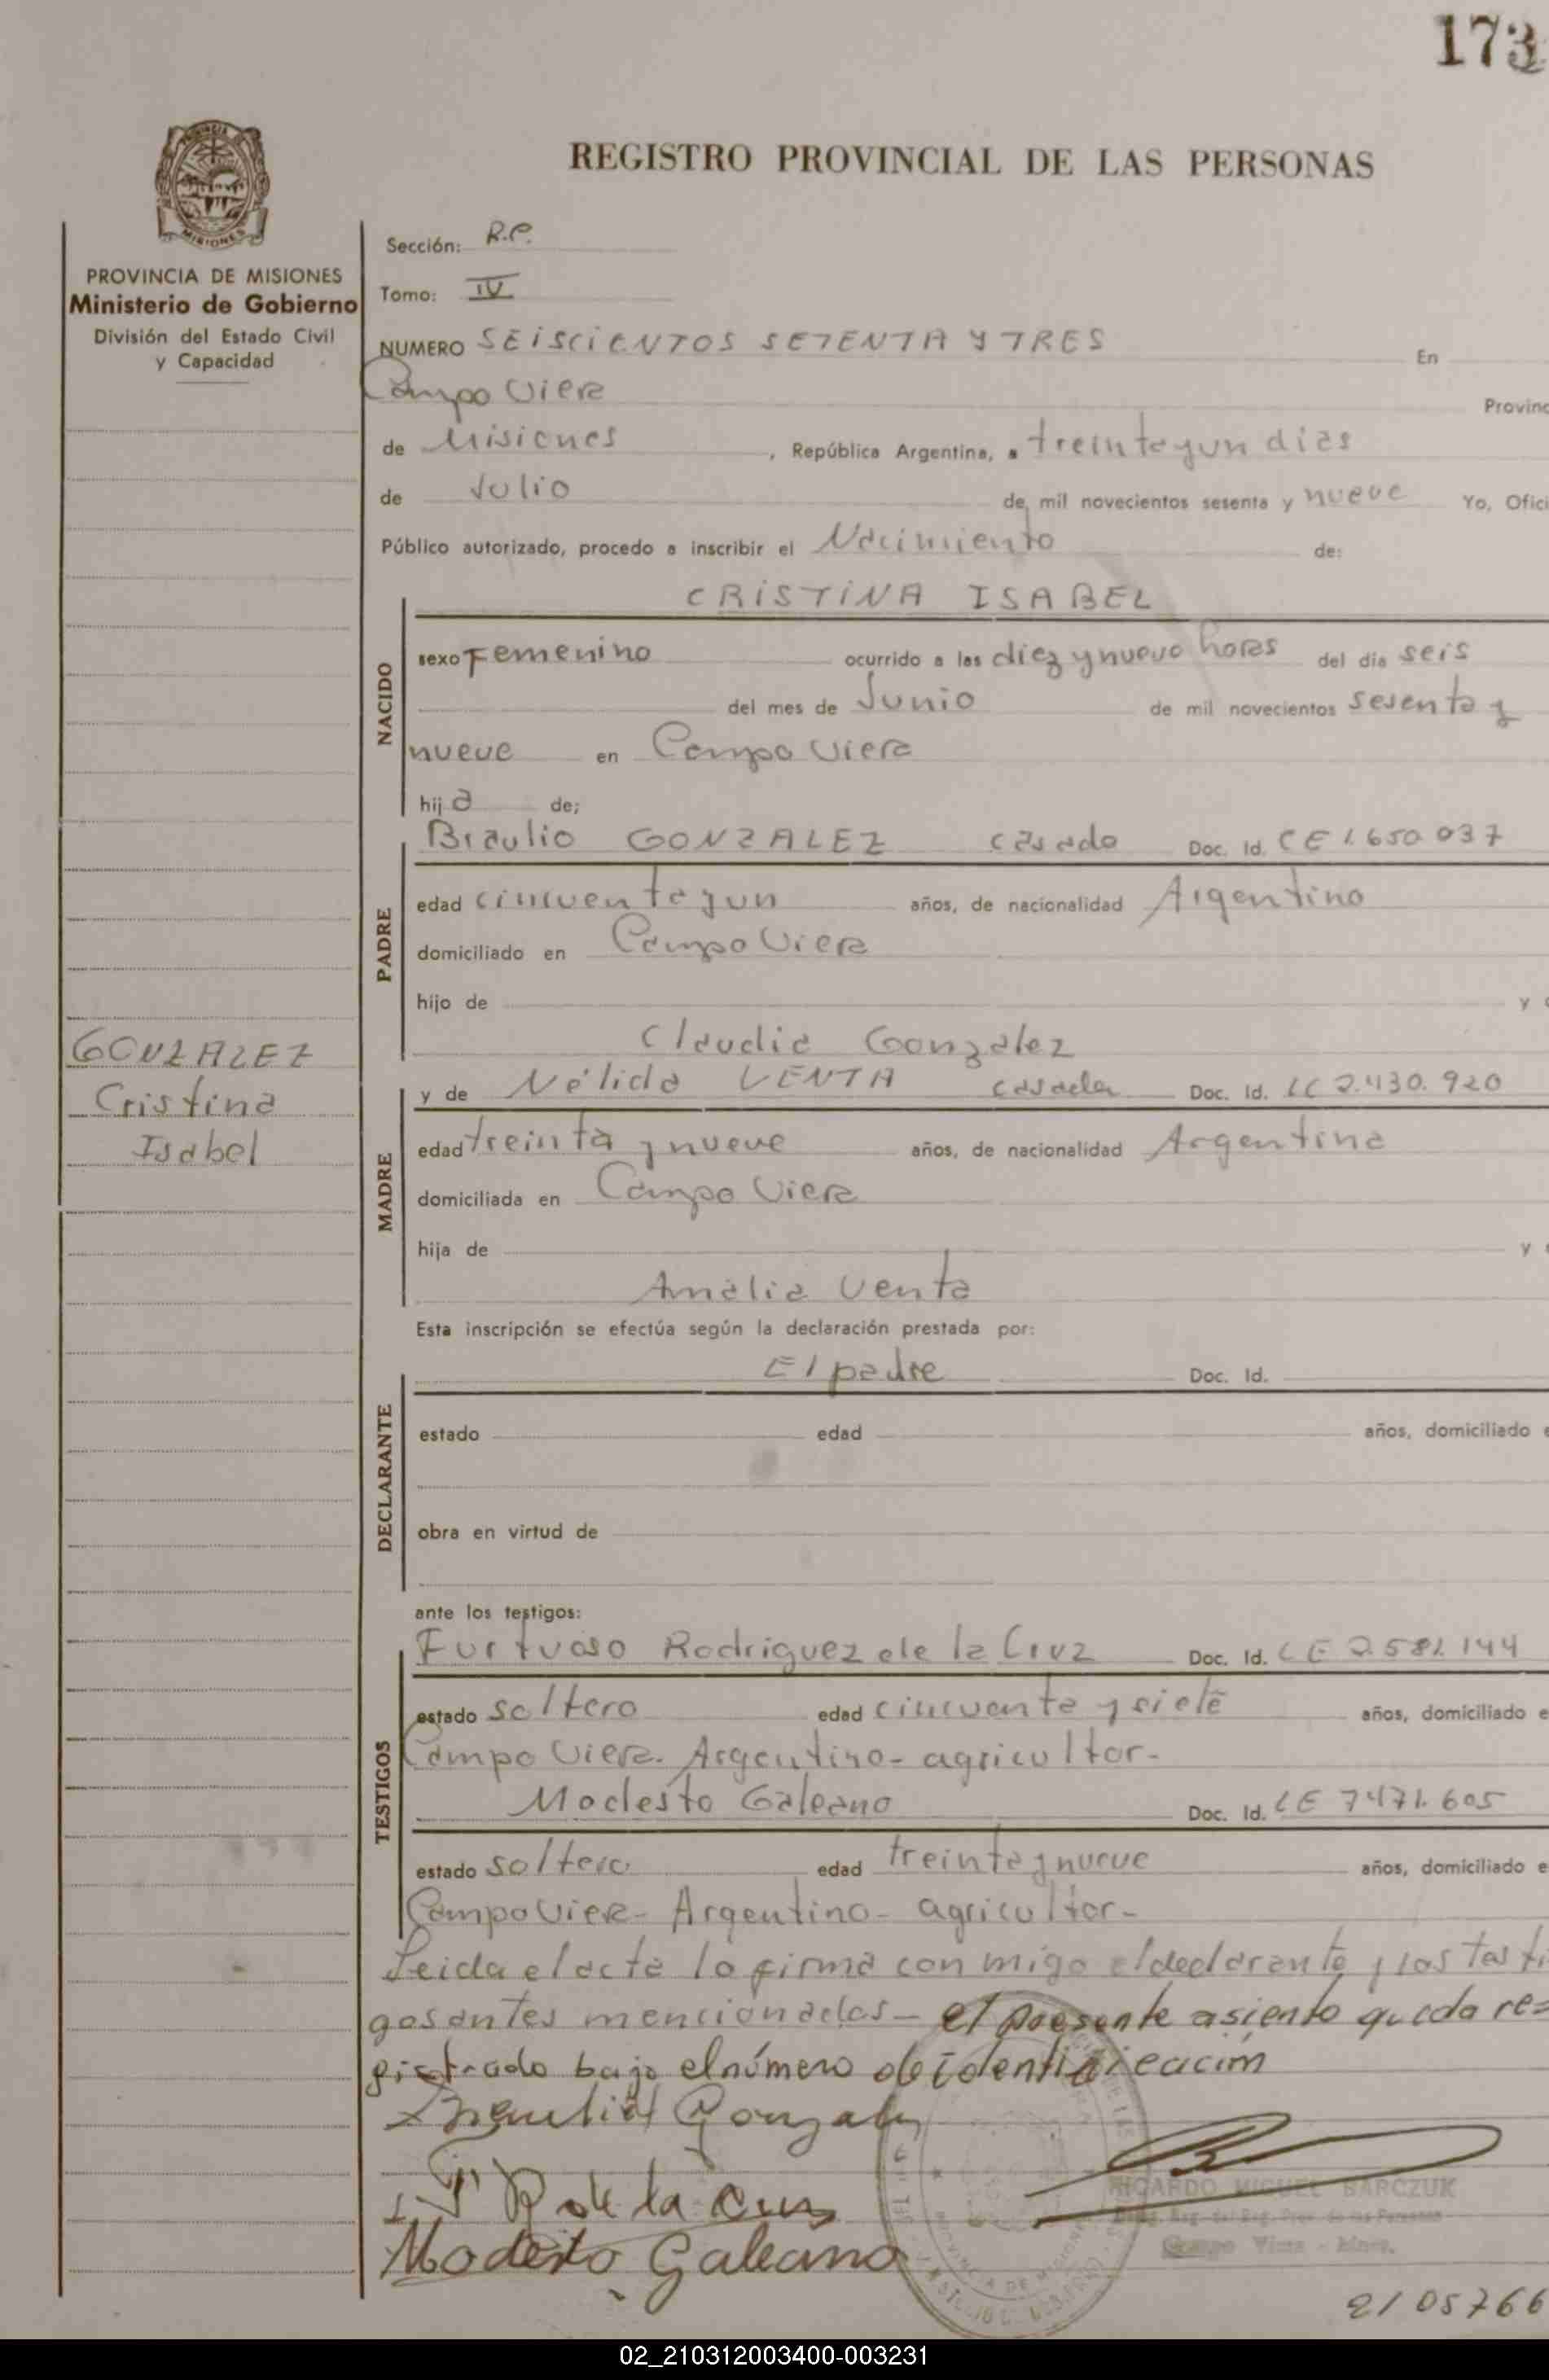 173
REGISTRO PROVINCIAL DE LAS PERSONAS
MISIONES
PROVINCIA DE MISIONES
Ministerio de Gobierno
División del Estado Civil
y Capacidad
Sección: R.P.
Tomo: IV
NUMERO SEISCIENTOS SETENTA Y TRES En
Campo Viera Provinc
de Misiones, República Argentina, a treinta y un dias
de Julio de mil novecientos sesenta y nueve Yo, Ofici
Público autorizado, procedo a inscribir el Nacimiento de:
CRISTINA ISABEL
NACIDO
sexo Femenino ocurrido a las diez y nueve horas del día seis
del mes de Junio de mil novecientos sesenta y
nueve en Campo Viera
hija de;
Braulio GONZALEZ casado Doc. Id. CE 1.650.037
PADRE
edad cincuenta y un años, de nacionalidad Argentino
domiciliado en Campo Viera
hijo de y
Claudia Gonzalez
GONZALEZ
Cristina
Isabel
y de Nélida VENTA casada Doc. Id. LC 2.430.920
MADRE
edad treinta y nueve años, de nacionalidad Argentina
domiciliada en Campo Viera
hija de y
Amalia Venta
Esta inscripción se efectúa según la declaración prestada por:
El padre Doc. Id.
DECLARANTE
estado edad años, domiciliado e
obra en virtud de
ante los testigos:
Furtuoso Rodriguez de la Cruz Doc. Id. LE 2.581.144
TESTIGOS
estado soltero edad cincuenta y siete años, domiciliado e
Campo Viera. Argentino- agricultor-
Modesto Galeano Doc. Id. LE 7.471.605
estado soltero edad treinta y nueve años, domiciliado e
Campo Viera- Argentino- agricultor-
Leida el acta la firma con migo el declarante y los testi
gos antes mencionados- el presente asiento queda re=
gistrado bajo el número de identificacion
Gonzalez
R de la Cruz
Modesto Galeano
RICARDO MIGUEL BARCZUK
Campo Viera - Mnes.
2105766
02_210312003400-003231